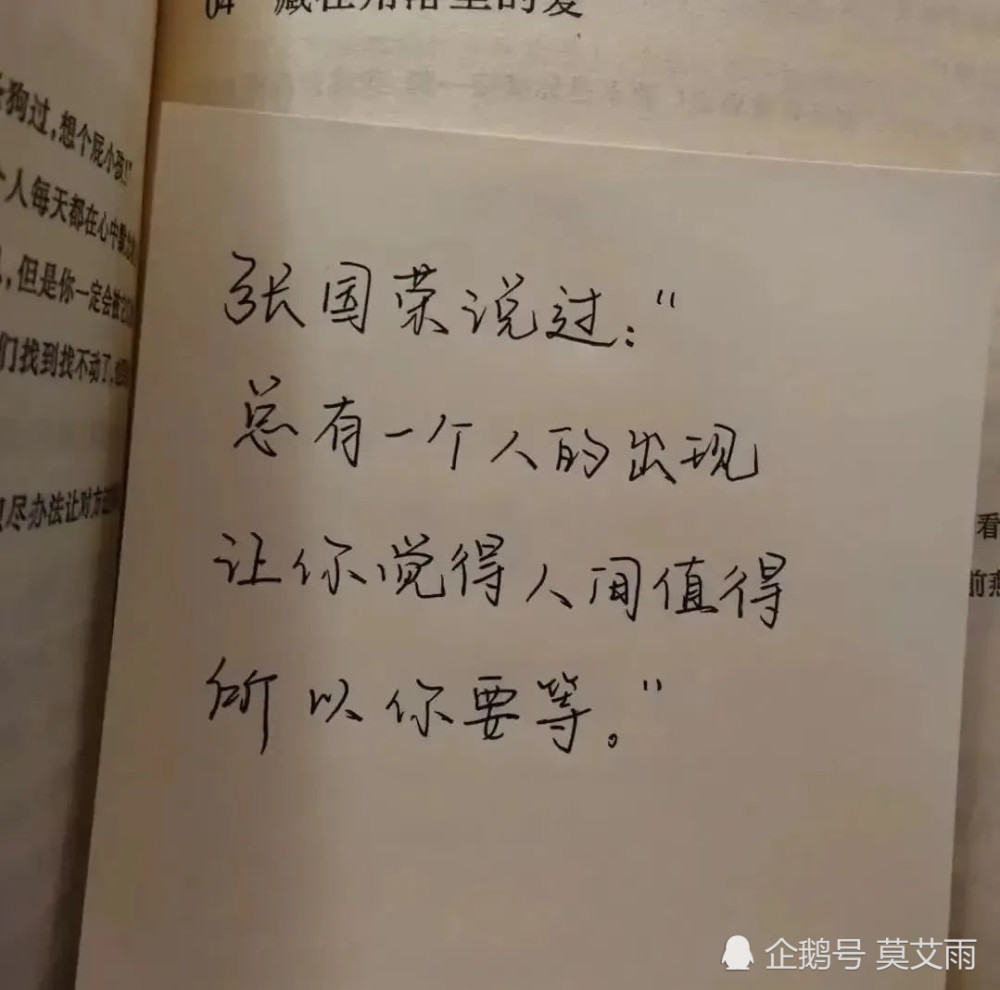 04 藏在角落里的爱
狗过，想个屁小孩！”
个人每天都在心中默
，但是你一定会被它
们找到找不动了，
尽办法让对方
张国荣说过：“
总有一个人的出现
让你觉得人间值得
所以你要等。”
看
前
企鹅号 莫艾雨